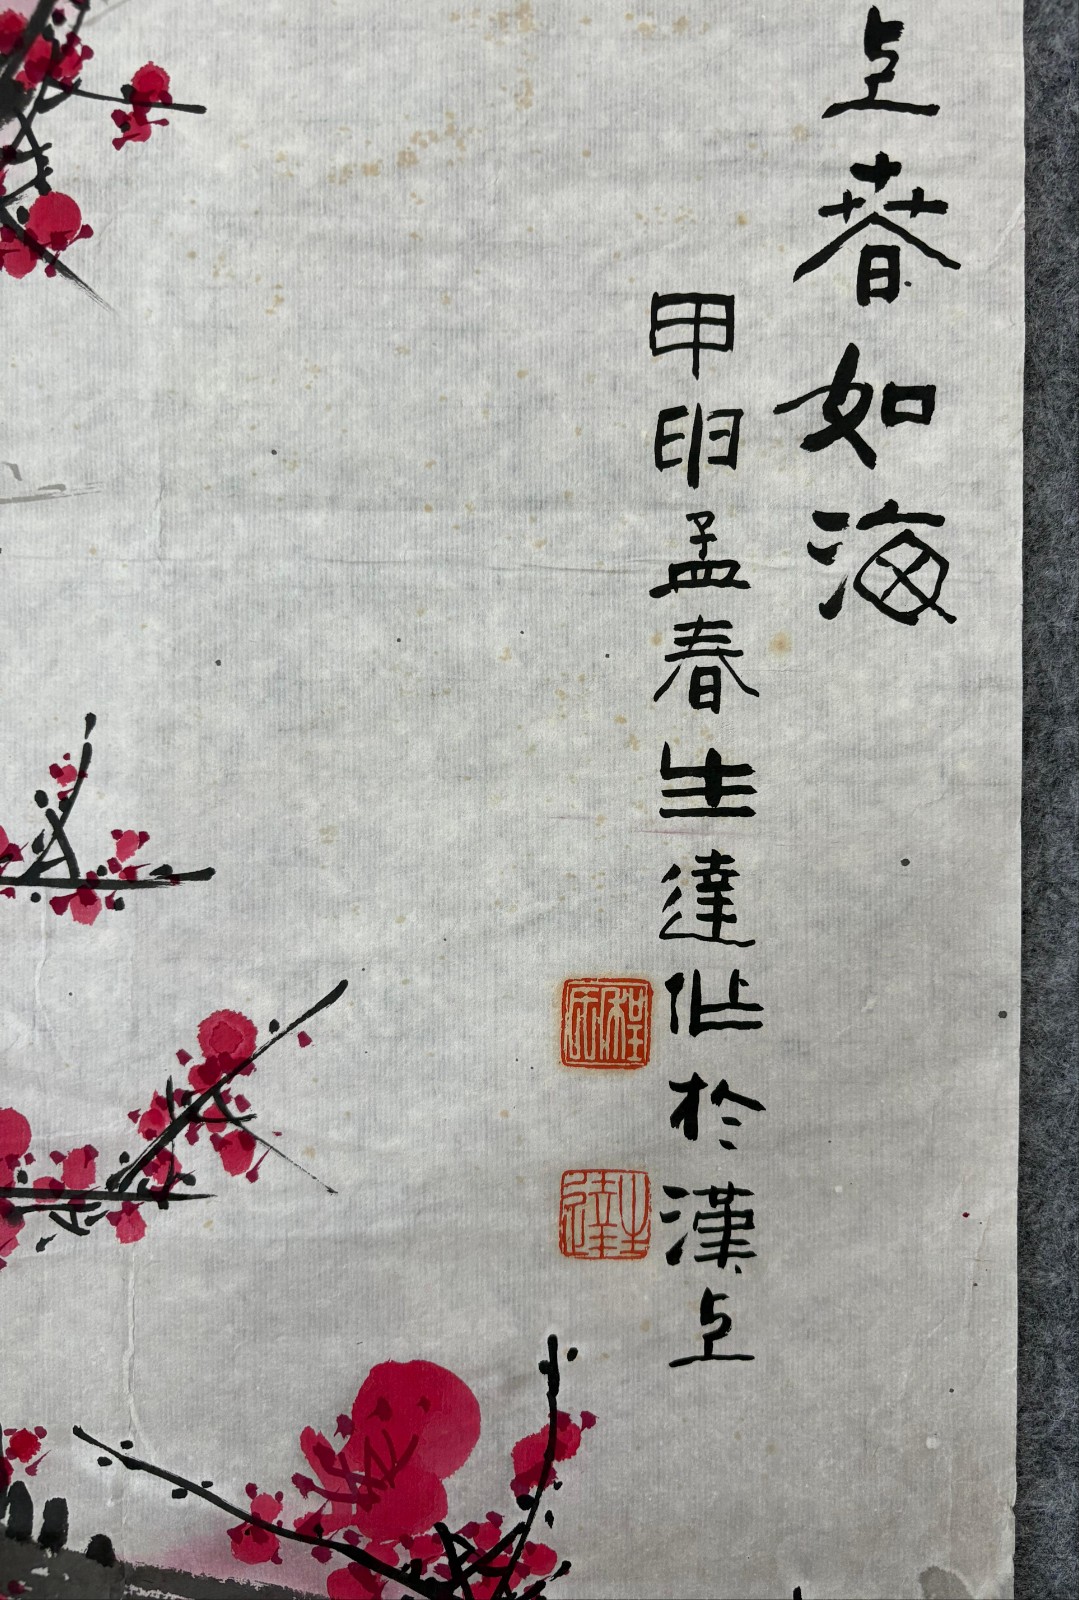 春如海
甲申孟春生達作於漢
程
生達